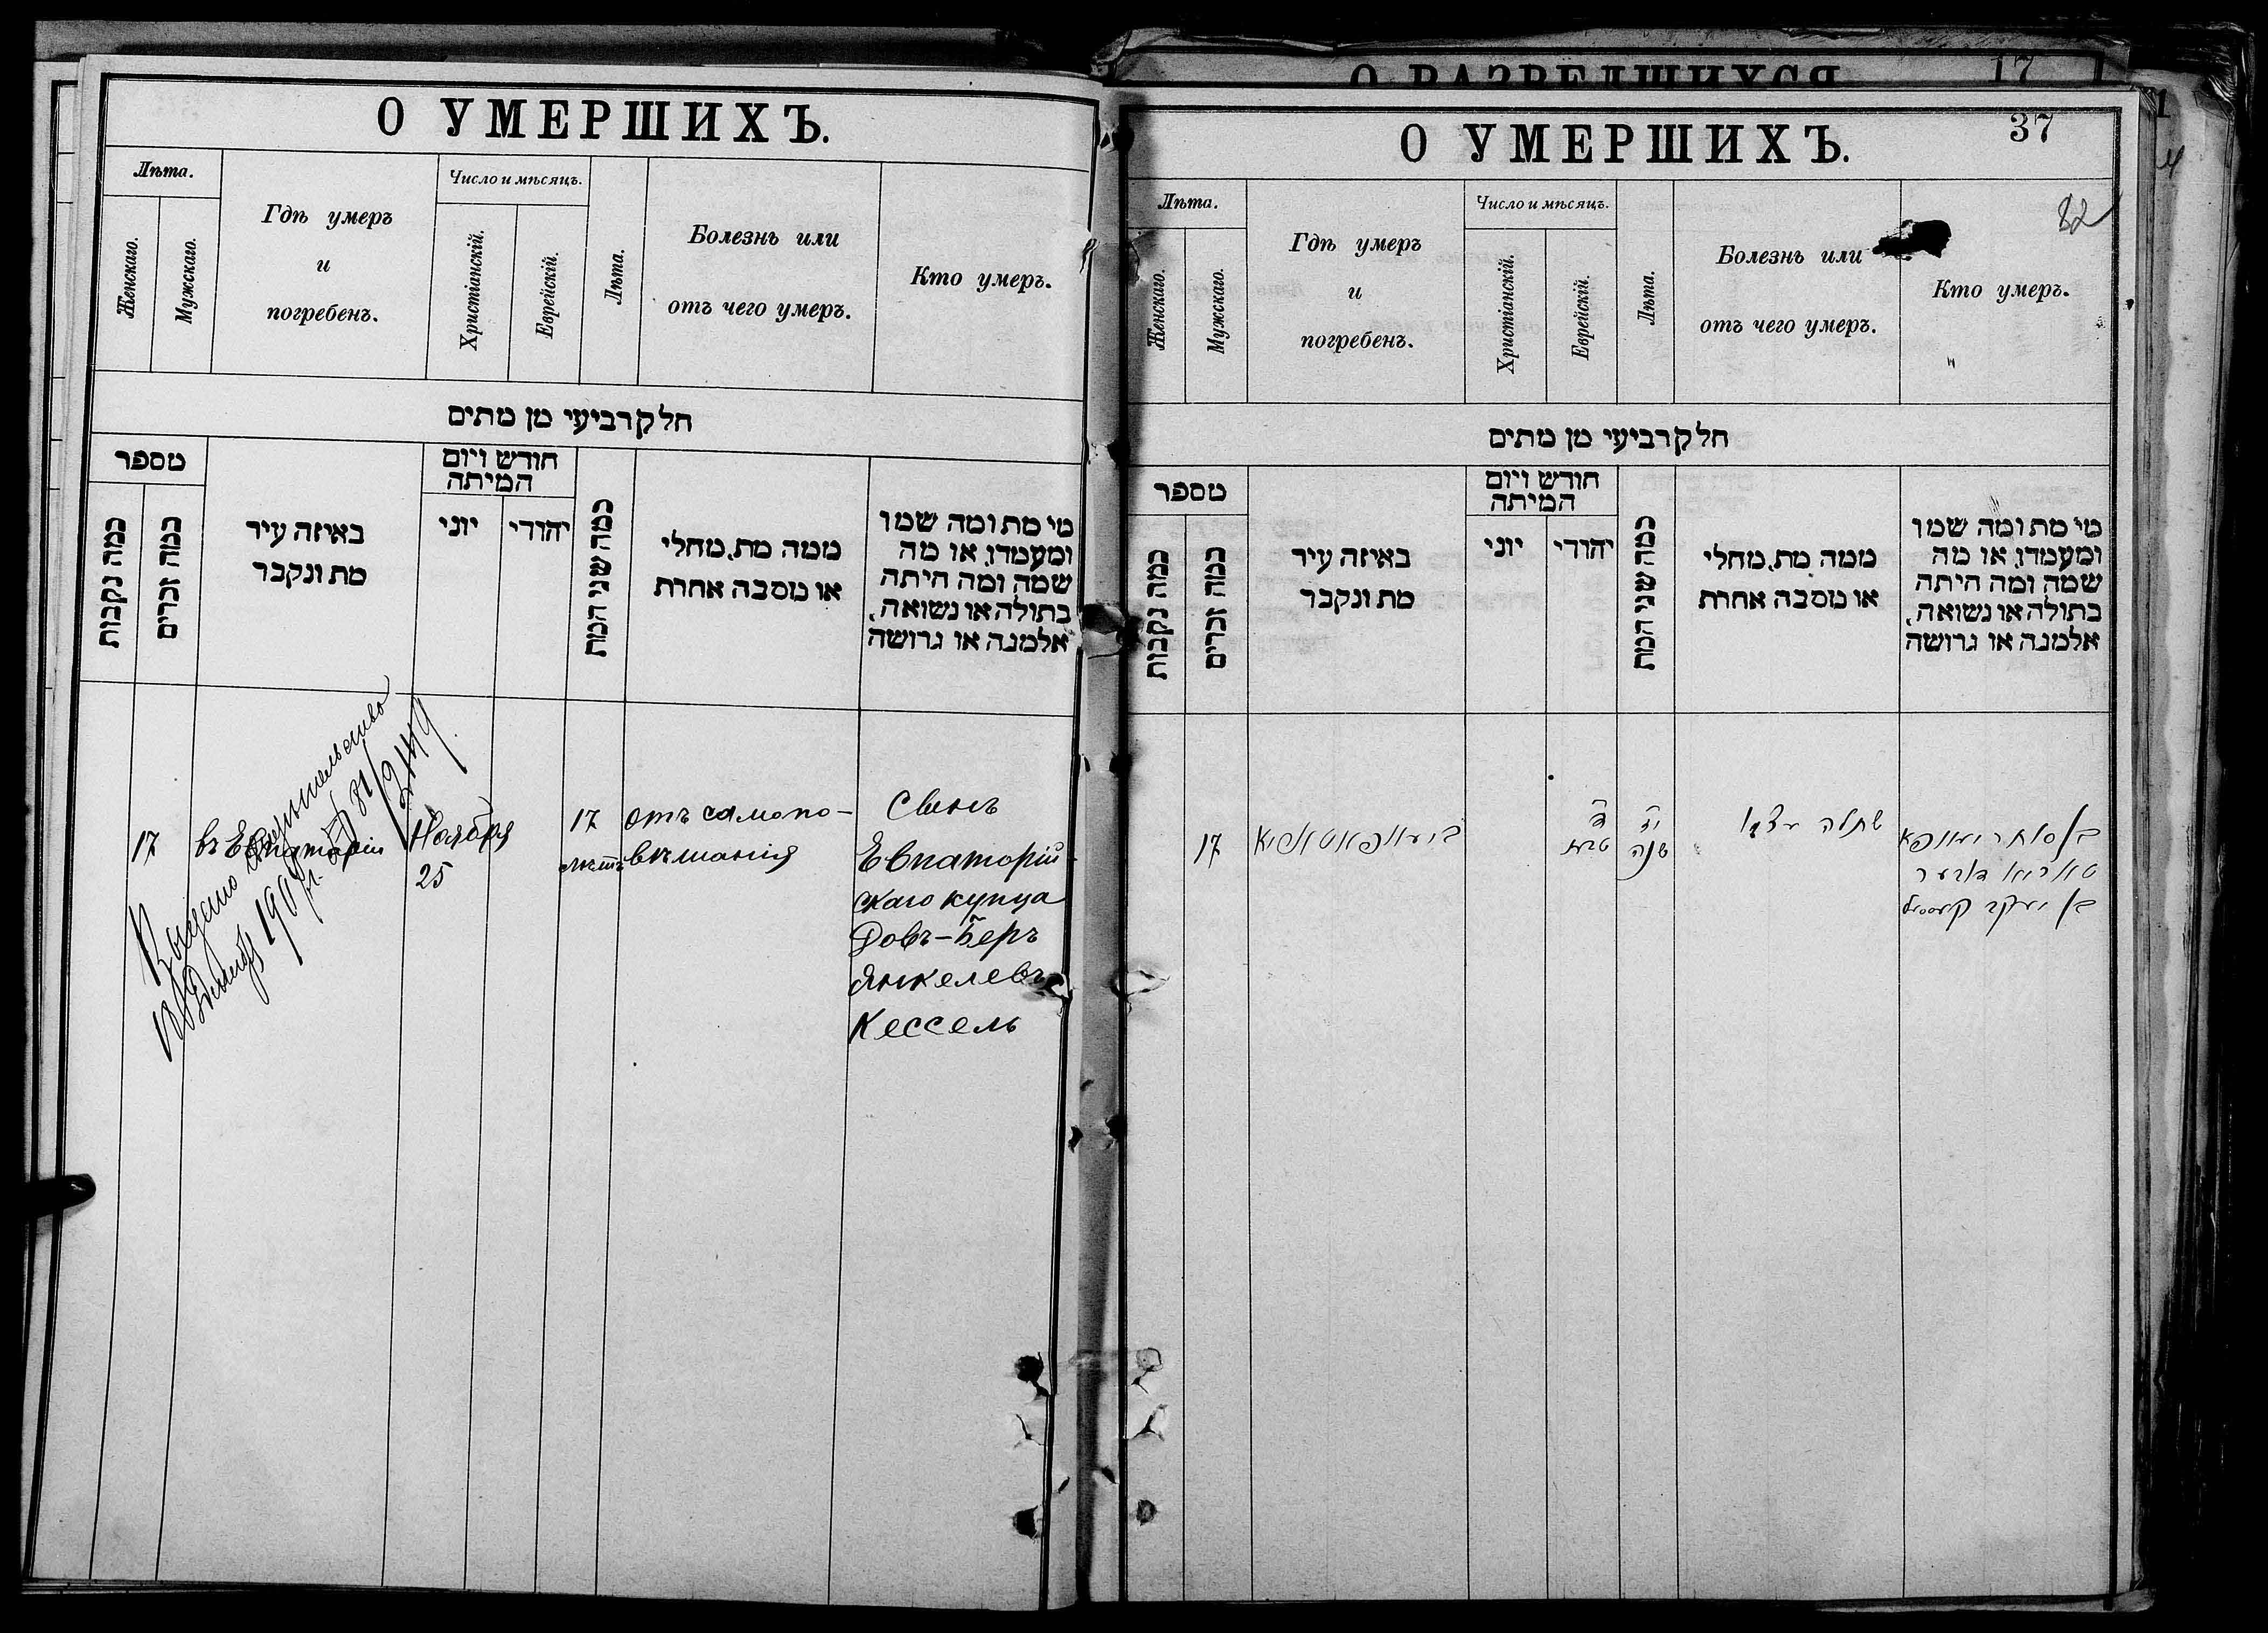 О РАЗВЕДШИХСЯ
17
О УМЕРШИХЪ.
Лѣта.
Женскаго.
Мужскаго.
Гдѣ умеръ
и
погребенъ.
Число и мѣсяцъ.
Христіанскій.
Еврейскій.
Лѣта.
Болезнь или
отъ чего умеръ.
Кто умеръ.
חלק רביעי מן מתים
מספר
כמה נקבות
כמה זכרים
באיזה עיר
מת ונקבר
חודש ויום
המיתה
יוני
יהודי
כמה שני המת
ממה מת, מחלי
או מסבה אחרת
מי מת ומה שמו
ומעמדו, או מה
שמה ומה היתה
בתולה או נשואה,
אלמנה או גרושה
17
въ Евпаторіи
Ноября
25
17
лѣтъ
отъ самопо-
вѣшанія
Сынъ
Евпаторій
скаго купца
Довъ-Беръ
Янкелевъ
Кессель
Выдано
190
О УМЕРШИХЪ.
37
82
Лѣта.
Женскаго.
Мужскаго.
Гдѣ умеръ
и
погребенъ.
Число и мѣсяцъ.
Христіанскій.
Еврейскій.
Лѣта.
Болезнь или
отъ чего умеръ.
Кто умеръ.
חלק רביעי מן מתים
מספר
כמה נקבות
כמה זכרים
באיזה עיר
מת ונקבר
חודש ויום
המיתה
יוני
יהודי
כמה שני המת
ממה מת, מחלי
או מסבה אחרת
מי מת ומה שמו
ומעמדו, או מה
שמה ומה היתה
בתולה או נשואה,
אלמנה או גרושה
17
טבת
יז
שנה
בן סוחר
בן יעקב